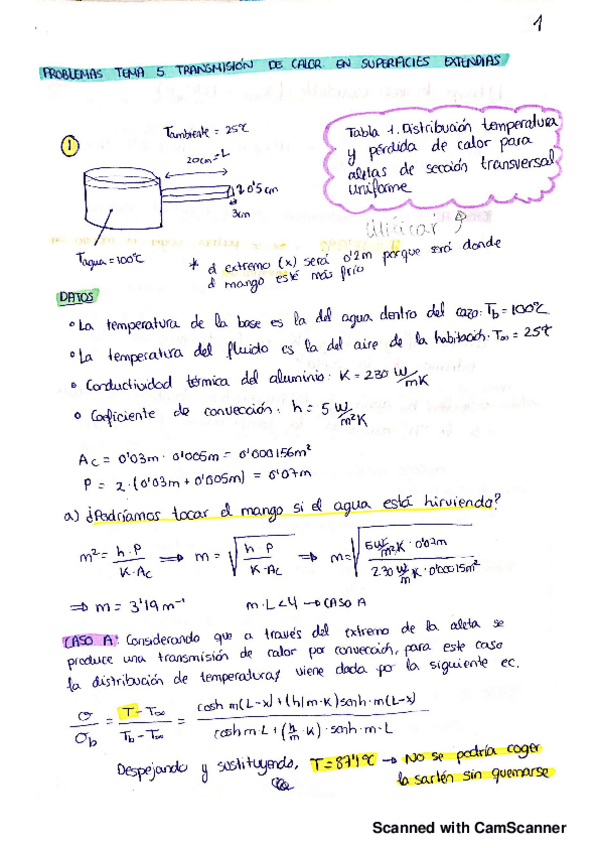 1
PROBLEMAS TEMA 5 TRANSMISIÓN DE CALOR EN SUPERFICIES EXTENDIAS
1
Tambiente = 25ºC
20cm=L
0'5cm
3cm
Tagua=100ºC
Tabla 1. Distribución temperatura
y pérdida de calor para
aletas de sección transversal
uniforme
Utilizar
* el extremo (x) será 0'2m porque será donde
el mango esté más frío
DATOS
• La temperatura de la base es la del agua dentro del cazo: Tb=100ºC
• La temperatura del fluido es la del aire de la habitación. T∞ = 25ºC
• Conductividad térmica del aluminio: K = 230 W/mK
• Coeficiente de convección: h = 5 W/m²K
Ac = 0'03m · 0'005m = 0'000156m²
P = 2·(0'03m + 0'005m) = 0'07m
a) ¿Podríamos tocar el mango si el agua está hirviendo?
m² = h·P / K·Ac ⟹ m = √(h P / K·Ac) ⟹ m = √(5 W/m²K · 0'07m / 230 W/m K · 0'00015m²)
⟹ m = 3'19 m⁻¹ m·L<4 → CASO A
CASO A: Considerando que a través del extremo de la aleta se
produce una transmisión de calor por convección, para este caso
la distribución de temperaturas viene dada por la siguiente ec.
σ/σb = T-T∞ / Tb-T∞ = cosh m(L-x)+(h/m·K)sonh·m(L-x) / cosh m·L+(h/m·K)·sonh·m·L
Despejando y sustituyendo, T=87'4ºC → No se podría coger
la sartén sin quemarse
Scanned with CamScanner